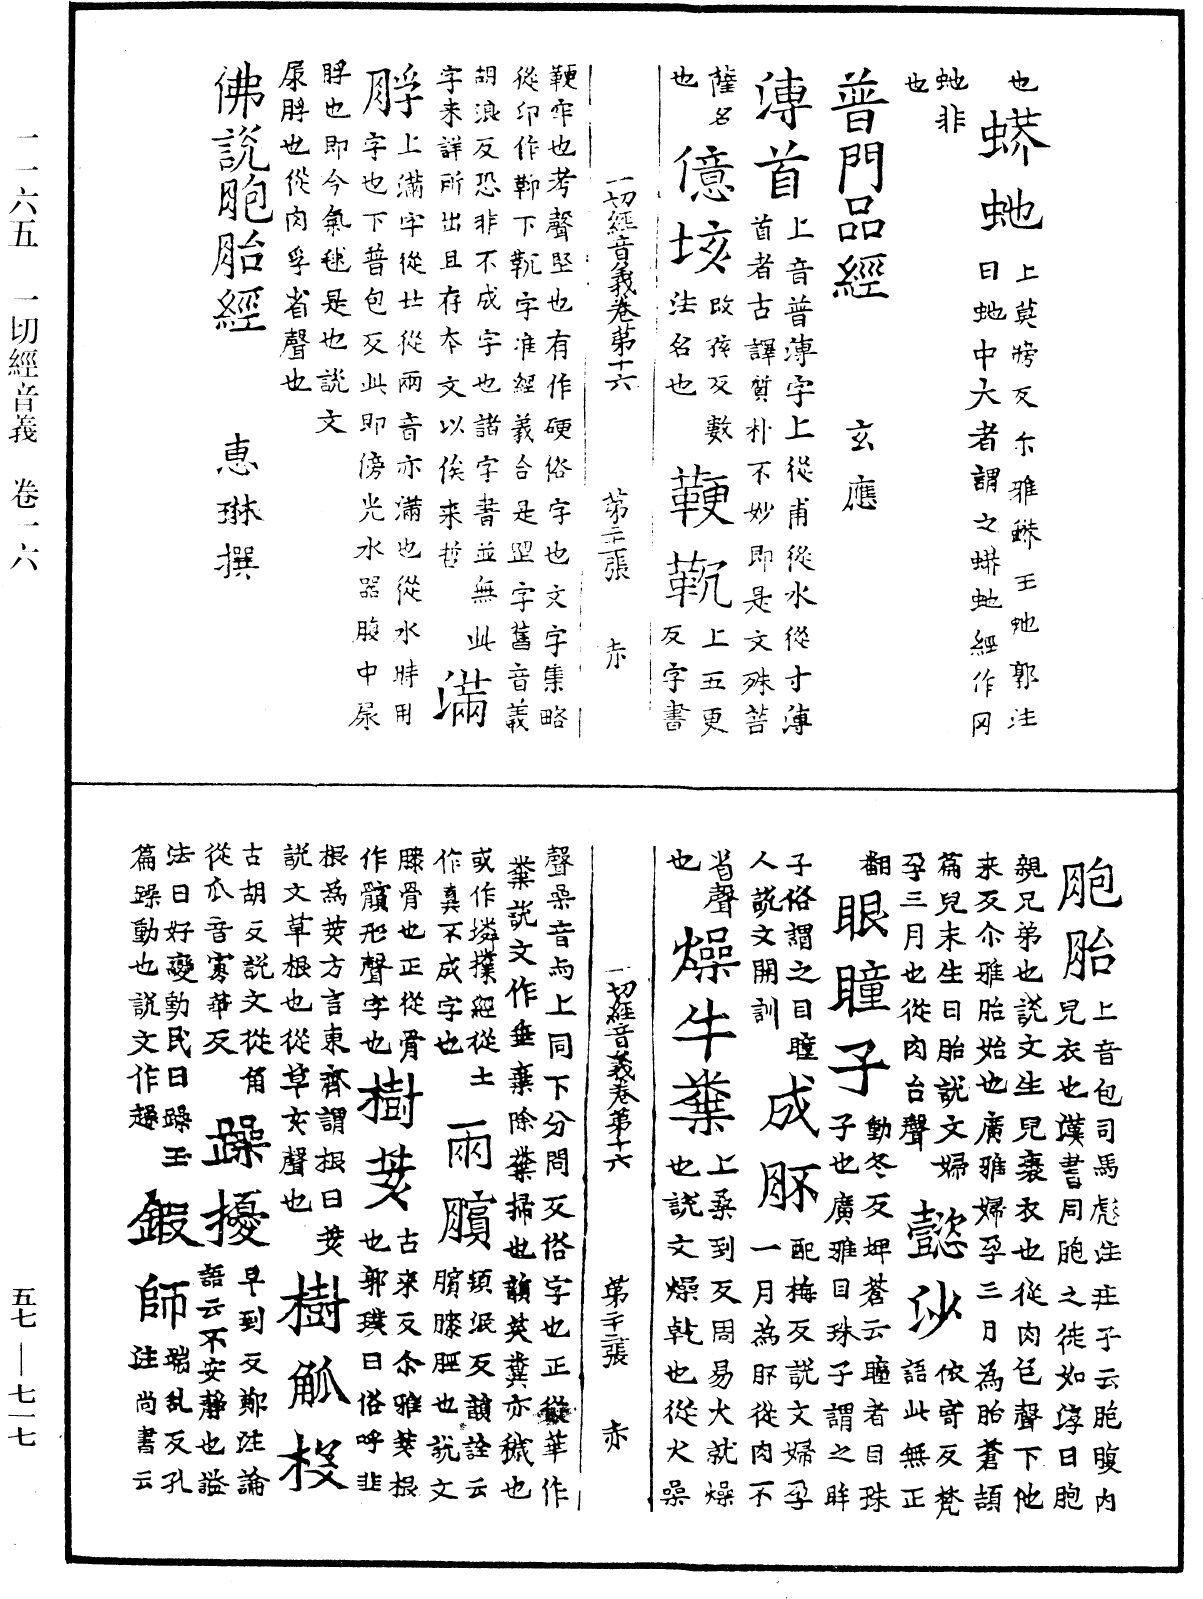 也
蟒虵上莫牓反尒雅蟒王虵郭注
曰虵中大者謂之蟒虵經作冈
虵非
也
普門品經 玄應
溥首上音普溥字上從甫從水從寸溥
首者古譯質朴不妙即是文殊菩
薩名
也
億垓改孩反數
法名也
鞕䩑上五更
反字書
一切經音義卷第十六 第二十一張 赤
鞕牢也考聲堅也有作硬俗字也文字集略
從印作䩕下䩑字准經義合是䍐字舊音義
胡浪反恐非不成字也諸字書並無此
字未詳所出且存本文以俟来哲
滿脬上滿字從廿從兩音亦滿也從水時用
字也下普包反此即傍光水器腹中尿
脬也即今氣毬是也說文
尿脬也從肉孚省聲也
佛說胞胎經 惠琳撰
胞胎上音包司馬彪注莊子云胞腹内
兒衣也漢書同胞之徒如淳曰胞
親兄弟也說文生兒裹衣也從肉包聲下他
来反尒雅胎始也廣雅婦孕三月為胎蒼頡
篇兒未生曰胎說文婦
孕三月也從肉台聲
懿沙依寄反梵
語此無正
翻
眼瞳子動冬反埤蒼云瞳者目珠
子也廣雅目珠子謂之眸
子俗謂之目瞳
人說文開訓
成肧配梅反說文婦孕
一月為肧從肉不
省聲
也
燥牛糞上桑到反周易火就燥
也說文燥乾也從火喿
一切經音義卷第十六 第二十二張 赤
聲喿音与上同下分問反俗字也正從華作
糞說文作垂棄除糞掃也韻英糞亦穢也
或作墣經從土
作真不成字也
兩臏頻泯反韻詮云
臏膝脛也說文
膝骨也正從骨
作髕形聲字也
樹荄古来反尒雅荄根
也郭璞曰俗呼韭
根為荄方言東齊謂根曰荄
說文草根也從草亥聲也
樹觚杸
古胡反說文從角
從瓜音寡華反
躁擾早到反鄭注論
語云不安靜也謚
法曰好變動民曰躁玉
篇躁動也說文作趮
鍛師端乱反孔
注尚書云
二一六五 一切經音義 卷一六
五七—七一七